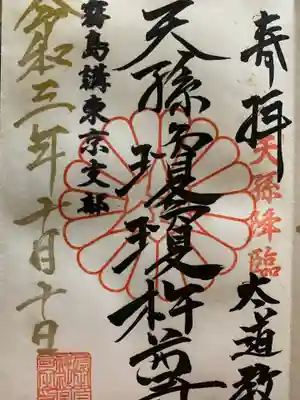 奉拝
天孫降臨
大道教
天孫瓊瓊杵尊
霧島講東京支部
令和三年十月十日